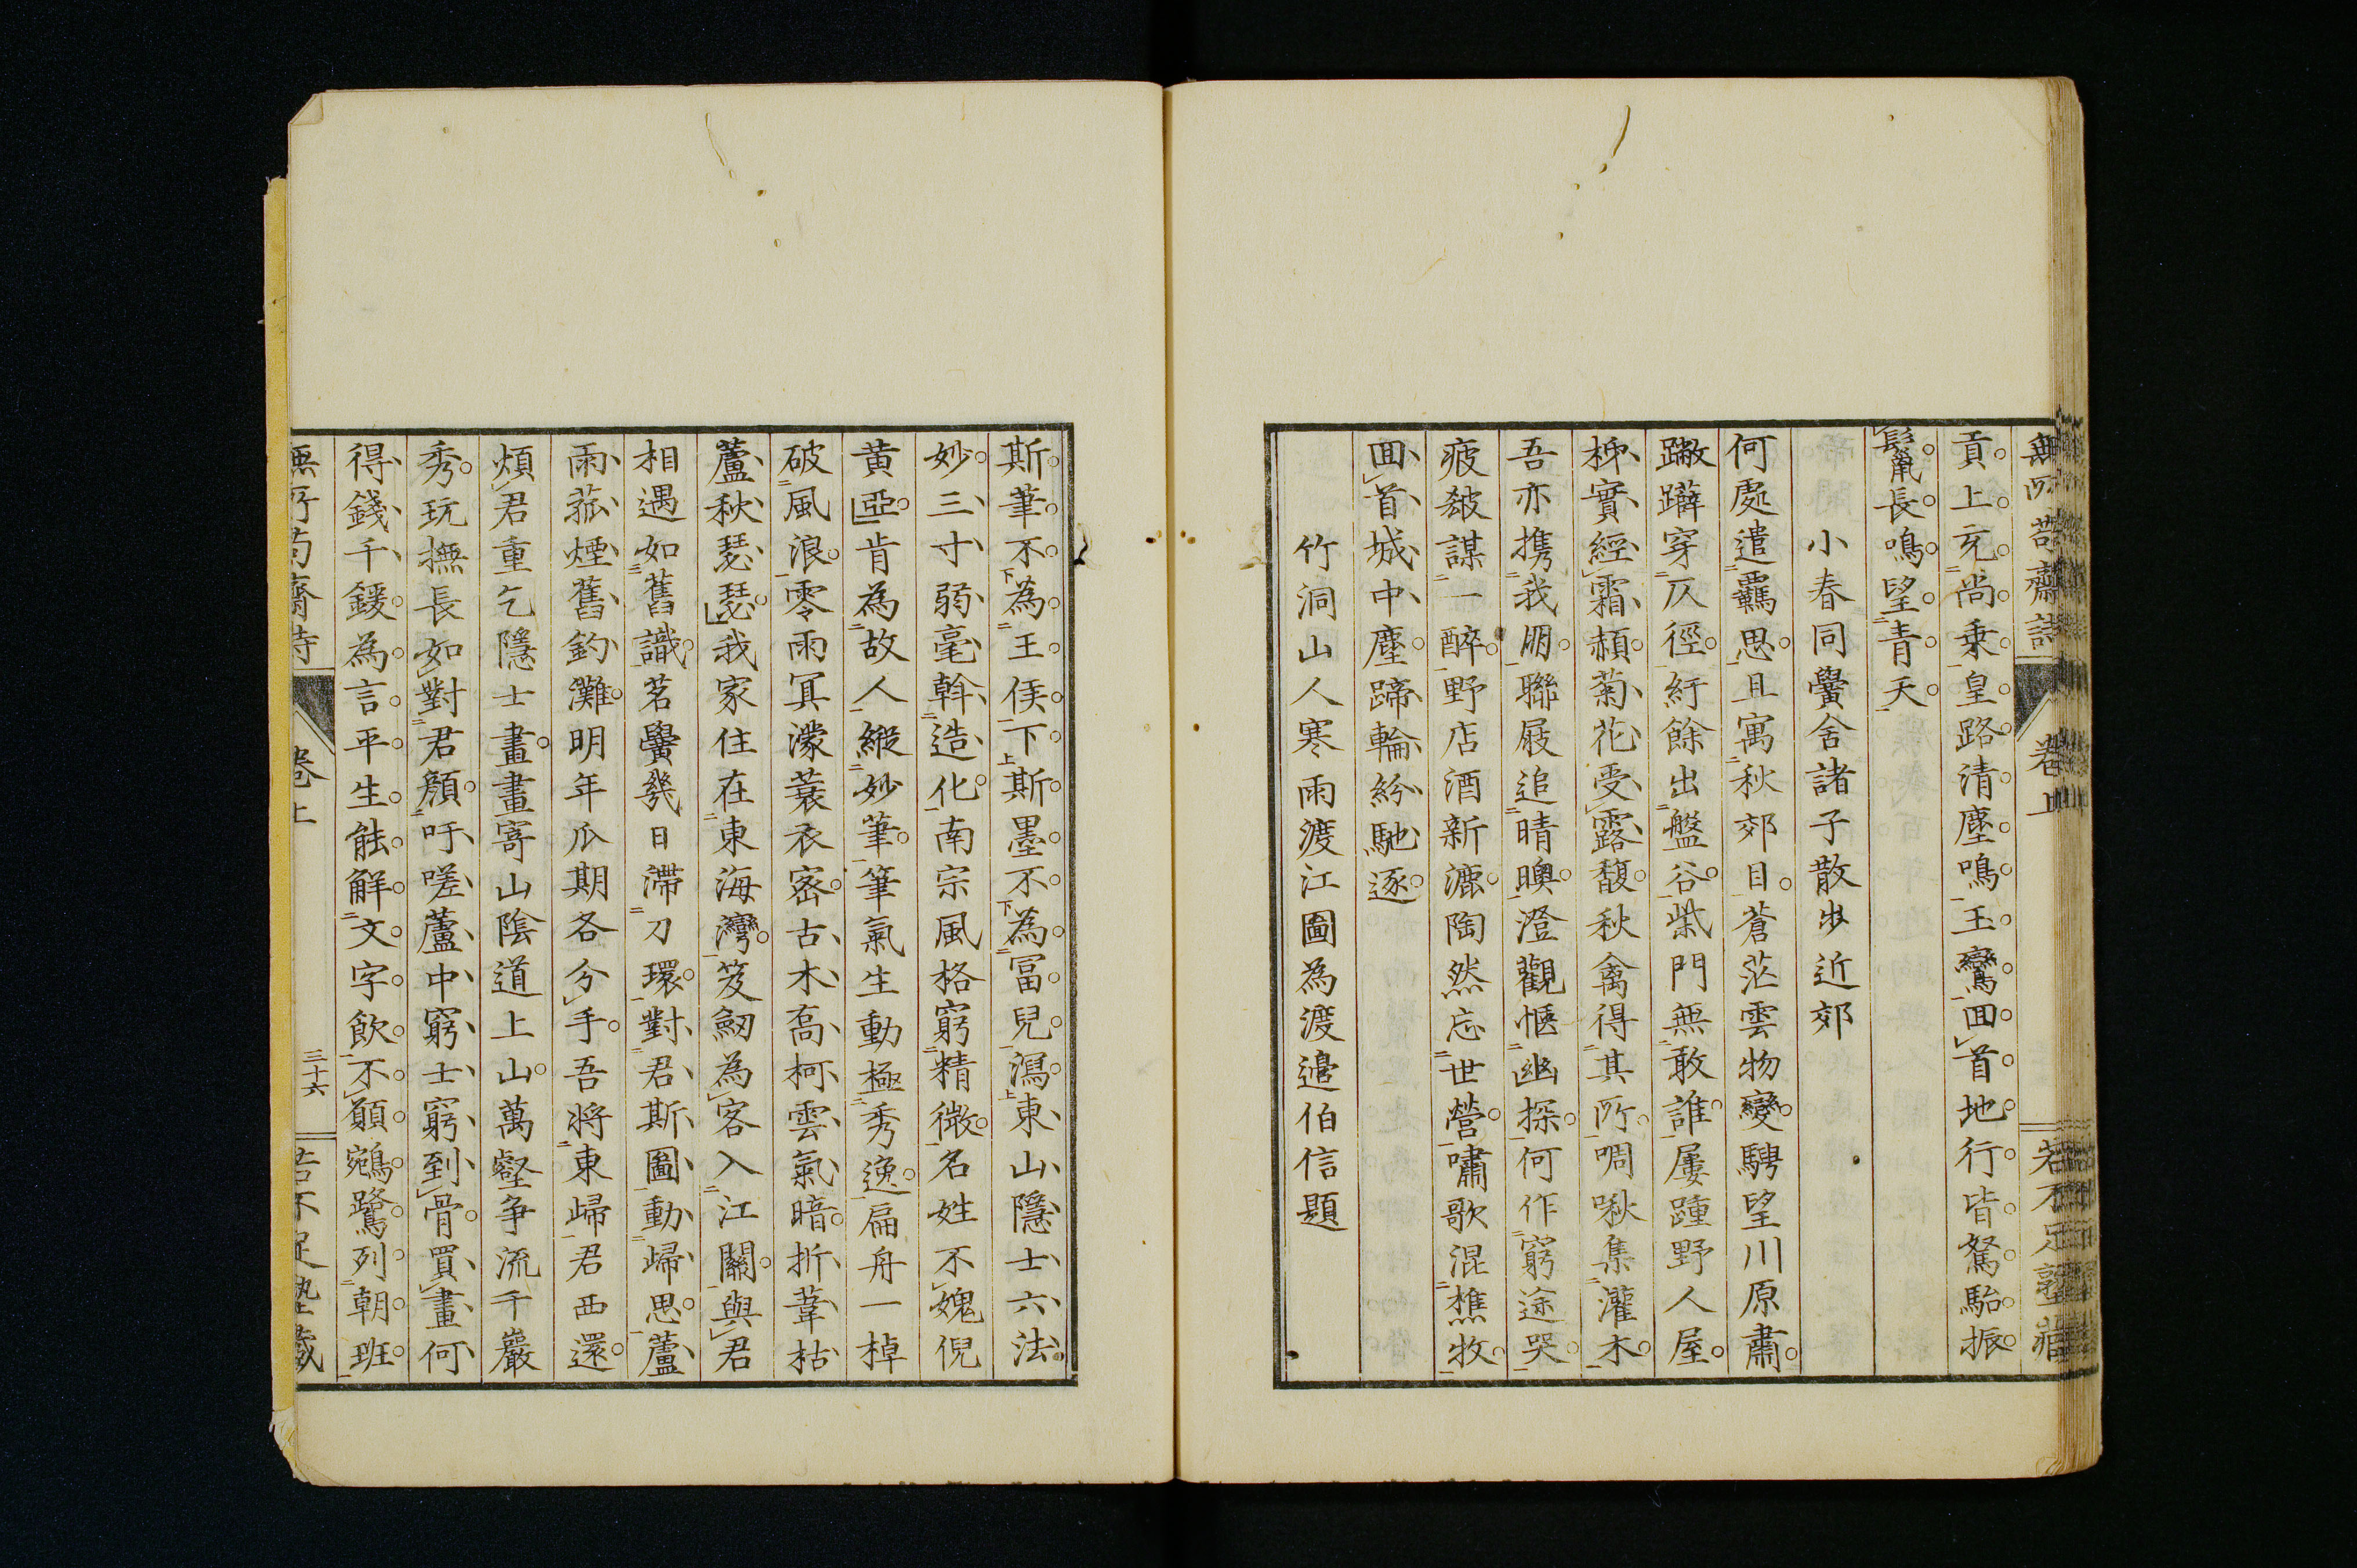 無所苟齋詩 卷上 若不足塾藏
貢上充尚乘皇路清塵鳴玉鸞回首地行皆駑駘振
鬣長鳴望青天
小春同黌舍諸子散步近郊
何處遣羈思且寓秋郊目蒼茫雲物變騁望川原肅
蹴躋穿仄徑紆餘出盤谷柴門無敢誰屢踵野人屋
柹實經霜赬菊花受露馥秋禽得其所啁啾集灌木
吾亦携我朋聯屐追晴暾澄觀愜幽探何作窮途哭
疲極謀一醉野店酒新漉陶然忘世營嘯歌混樵牧
回首城中塵蹄輪紛馳逐
竹洞山人寒雨渡江圖為渡邉伯信題
斯筆不為王侯下斯墨不為冨兒瀉東山隱士六法
妙三寸弱毫斡造化南宗風格窮精微名姓不媿倪
黄亞肯為故人緞妙筆筆氣生動極秀逸扁舟一棹
破風浪零雨冥濛蓑衣宻古木髙柯雲氣暗折葦枯
蘆秋瑟瑟我家住在東海灣笈劒為客入江關與君
相遇如舊識茗黌幾日滯刀環對君斯圖動歸思蘆
雨菰煙舊釣灘明年瓜期各分手吾將東歸君西還
煩君重乞隱士畫畫寄山陰道上山萬壑争流千巖
秀玩撫長如對君顏吁嗟蘆中窮士窮到骨買畫何
得錢千鍰為言平生能解文字飲不願鵷鷺列朝班
無所苟齋詩 卷上 三十六 若不足塾藏